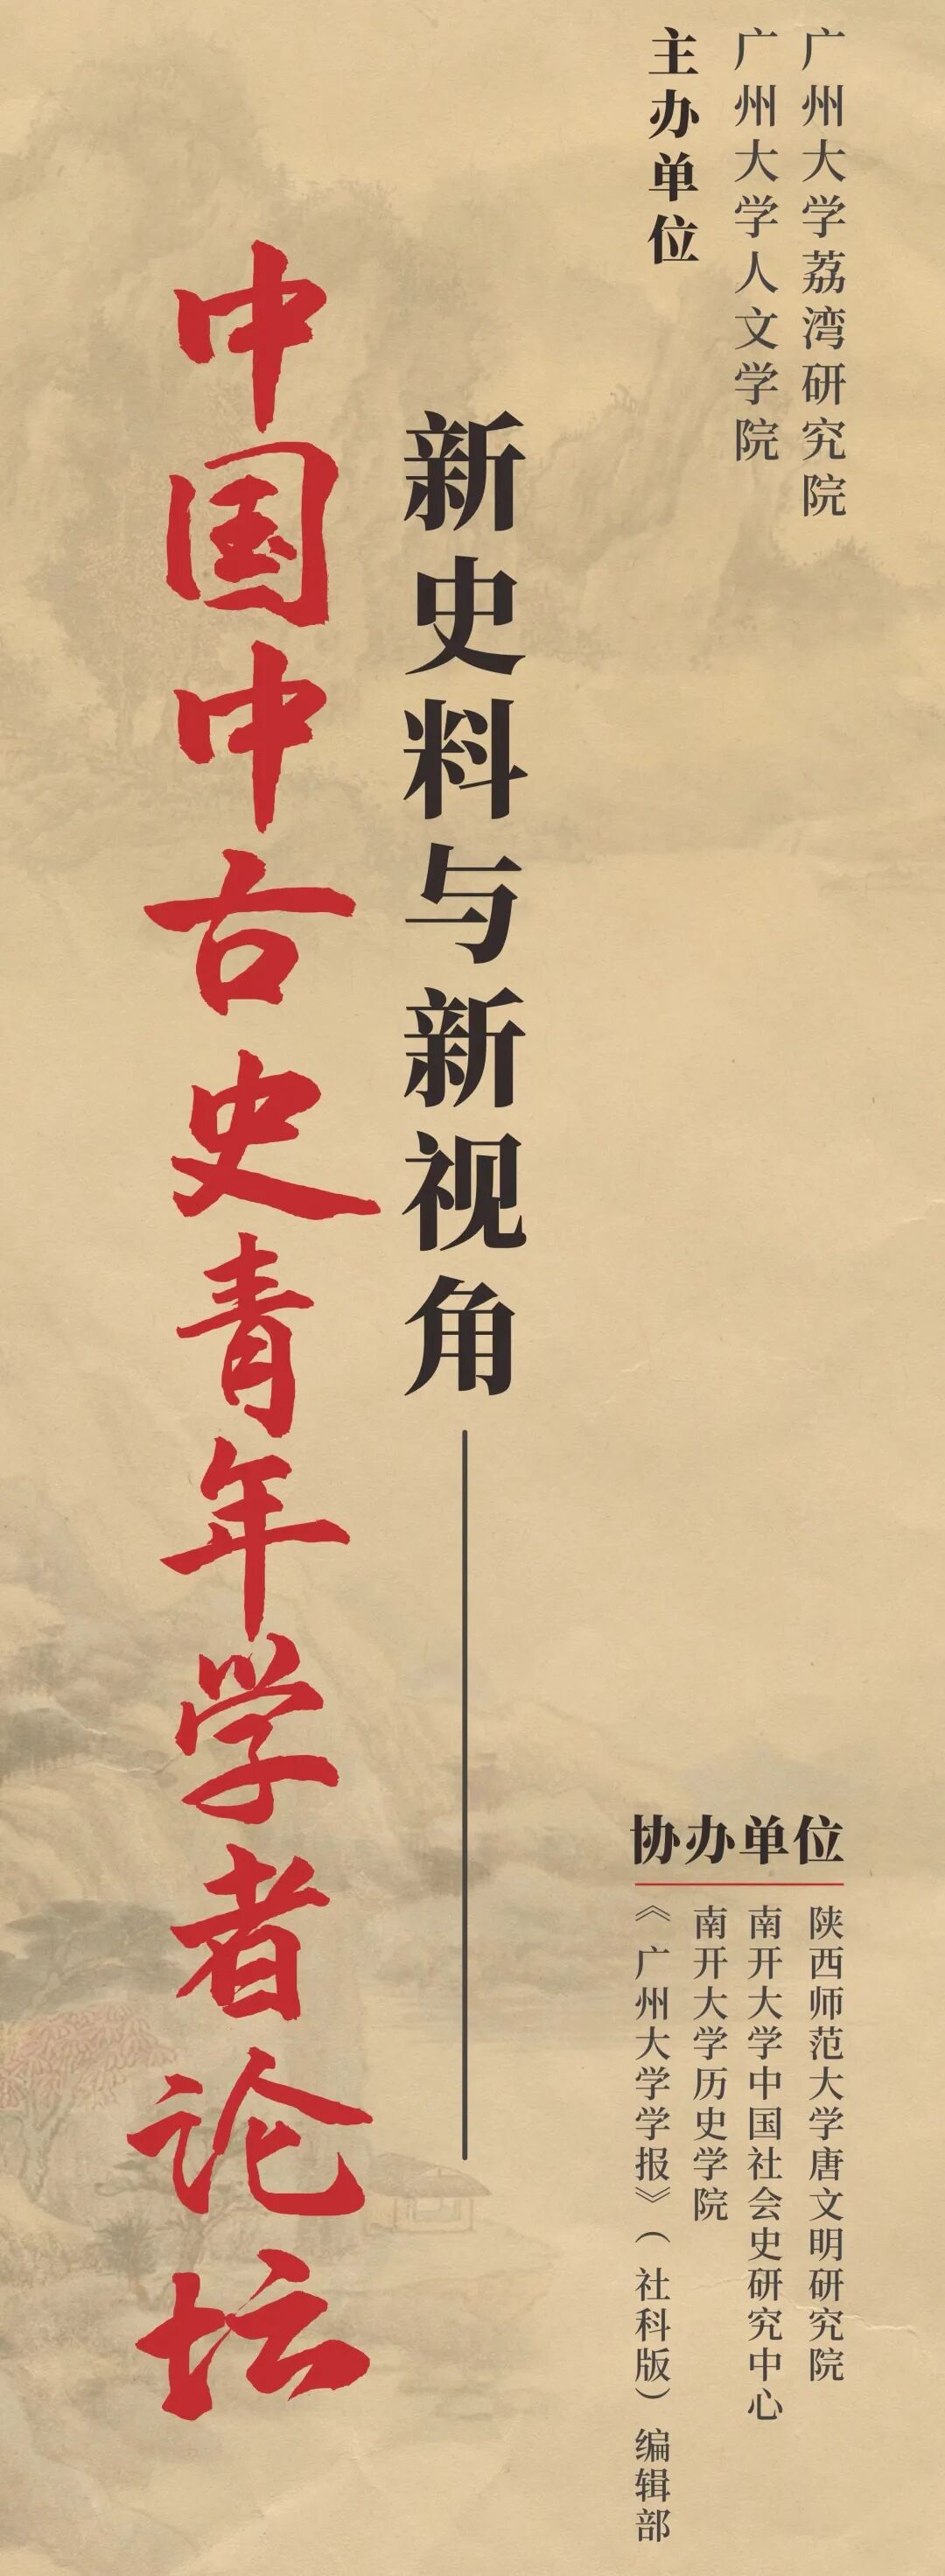 主办单位
广州大学荔湾研究院
广州大学人文学院
新史料与新视角——
中国中古史青年学者论坛
协办单位
陕西师范大学唐文明研究院
南开大学中国社会史研究中心
南开大学历史学院
《广州大学学报》（社科版）编辑部